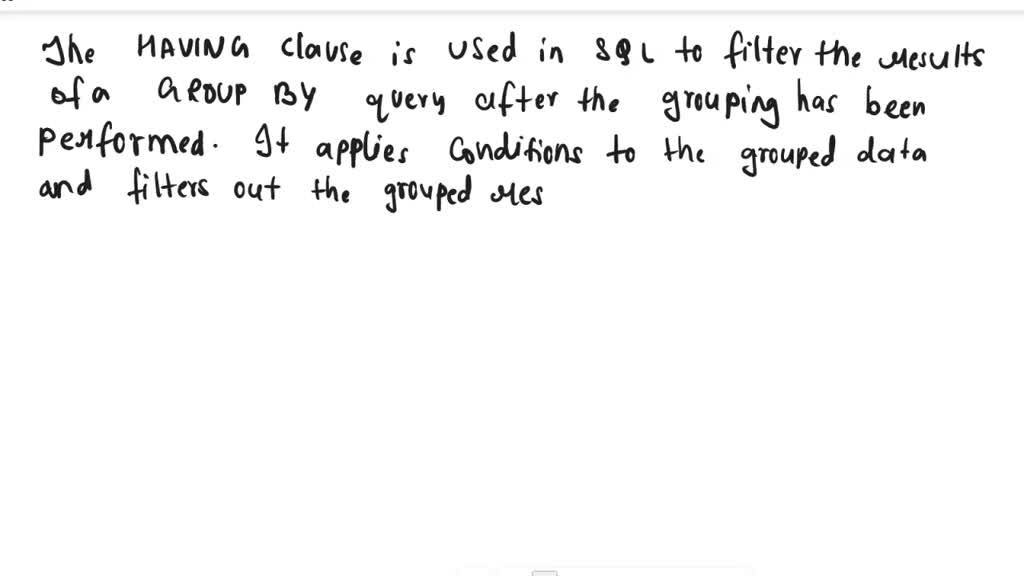 The HAVING clause is used in SQL to filter the results
of a GROUP BY query after the grouping has been
performed. It applies conditions to the grouped data
and filters out the grouped res